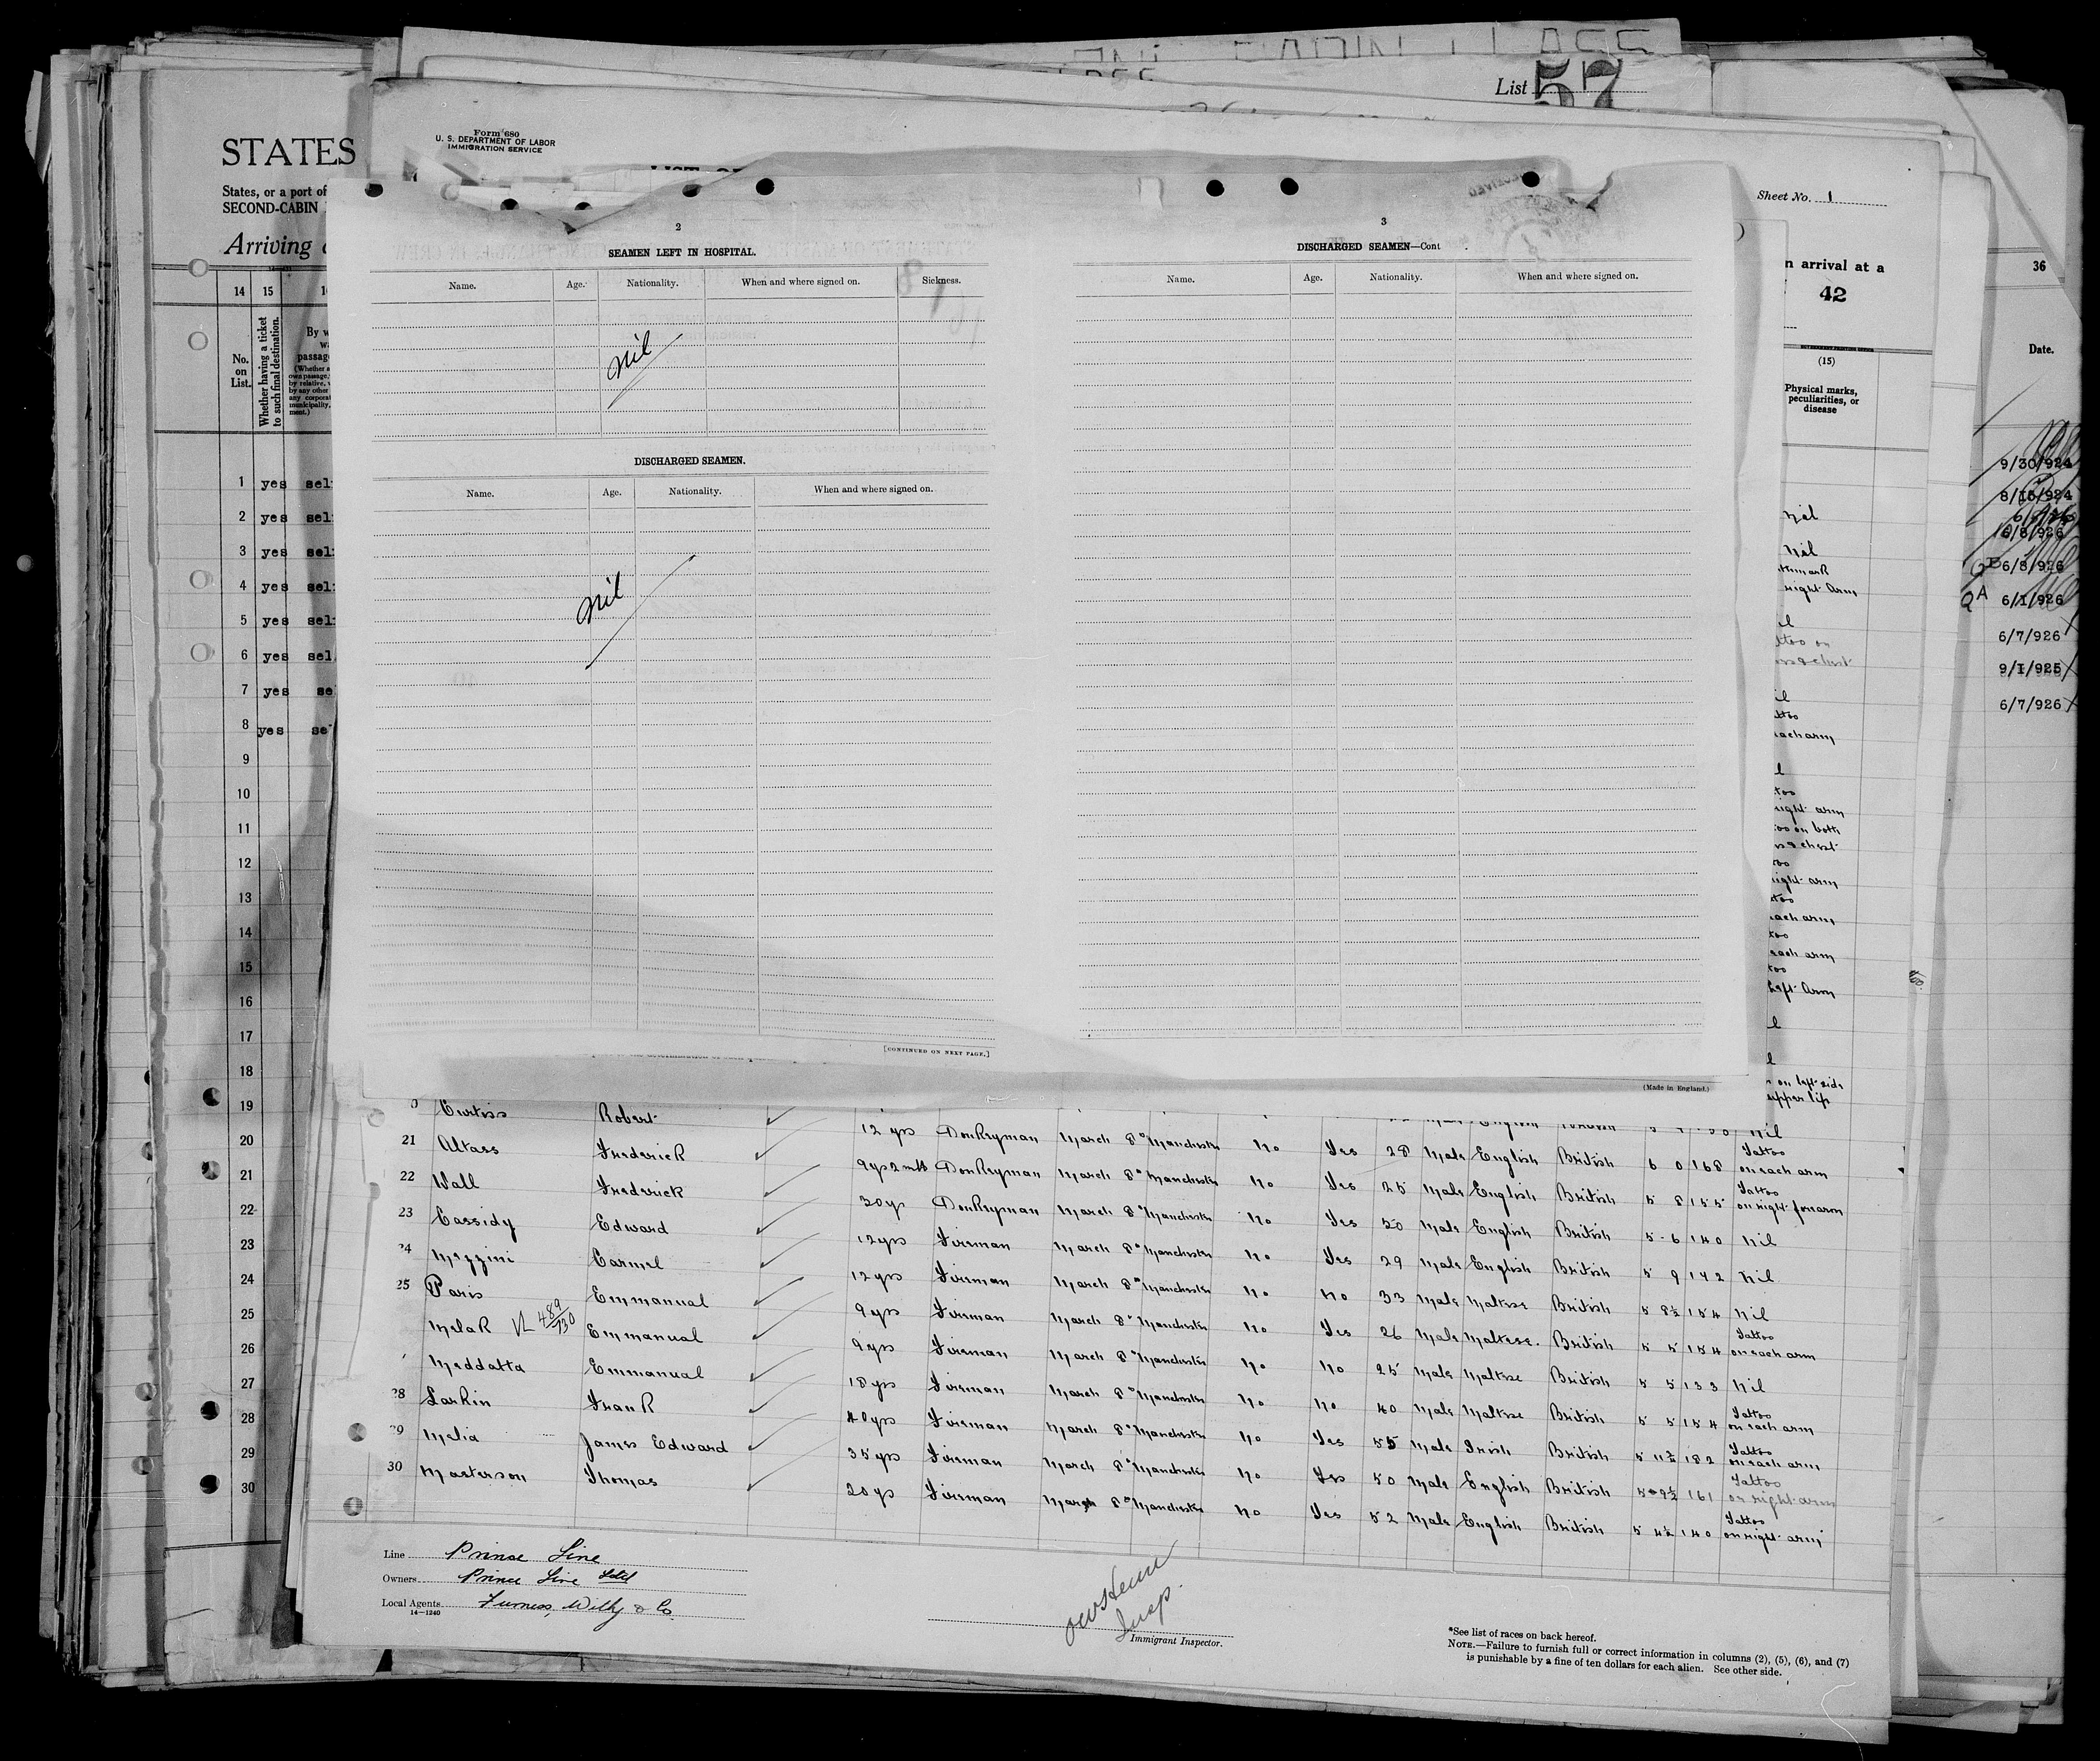 List 57
Form 680
U. S. DEPARTMENT OF LABOR
IMMIGRATION SERVICE
STATES
States, or a port of
SECOND-CABIN
Arriving
14 15
No. on List.
Whether having a ticket to such final destination.
1 yes sel
2 yes sel
3 yes sel
4 yes sel
5 yes sel
6 yes sel
7 yes se
8 yes se
9
10
11
12
13
14
15
16
17
18
19
20
21
22
23
24
25
26
27
28
29
30
2
SEAMEN LEFT IN HOSPITAL.
Name. Age. Nationality. When and where signed on. Sickness.
nil
DISCHARGED SEAMEN.
Name. Age. Nationality. When and where signed on.
nil
[CONTINUED ON NEXT PAGE.]
3
DISCHARGED SEAMEN—Cont
Name. Age. Nationality. When and where signed on.
(Made in England.)
Sheet No. 1
n arrival at a
42
(15)
Physical marks, peculiarities, or disease
nil
nil
right Arm
each arm
right arm
on both
right arm
each arm
each arm
Left Arm
on left side
upper lip
36
Date.
9/30/924
8/15/924
6/8/926
6/8/926
6/1/926
6/7/926
9/1/925
6/7/926
Curtiss Robert 12 yrs Donkeyman March 8th Manchester no Yes 28 Male English British 6 0 168 Tattoo on each arm
21 Altass Frederick 9 yrs 2 mths Donkeyman March 8th Manchester no Yes 25 Male English British 5 8 155 Tattoo on right forearm
22 Wall Frederick 30 yr Donkeyman March 8th Manchester no Yes 50 Male English British 5 6 140 Nil
23 Cassidy Edward 12 yrs Fireman March 8th Manchester no Yes 29 Male English British 5 9 142 Nil
24 Mizzini Carmel 12 yrs Fireman March 8th Manchester no no 33 Male Maltese British 5 8½ 154 Nil
25 Paris Emmanual 9 yrs Fireman March 8th Manchester no Yes 26 Male Maltese. British 5 5 154 Tattoo on each arm
Melak 489/130 Emmanual 9 yrs Fireman March 8th Manchester no no 25 Male Maltese British 5 5 133 Nil
Meddatta Emmanual 18 yrs Fireman March 8th Manchester no no 40 Male Maltese British 5 5 154 Tattoo on each arm
28 Larkin Frank 40 yrs Fireman March 8th Manchester no Yes 55 Male Irish British 5 11½ 182 Tattoo on each arm
29 Melia James Edward 35 yrs Fireman March 8th Manchester no Yes 50 Male English British 5 9½ 161 Tattoo on right arm
30 Masterson Thomas 20 yo Fireman March 8th Manchester no Yes 52 Male English British 5 4½ 140 Tattoo on right arm
Line Prince Line
Owners Prince Line Ltd
Local Agents Furness, Withy & Co.
14—1240
Insp.
Immigrant Inspector.
*See list of races on back hereof.
NOTE.—Failure to furnish full or correct information in columns (2), (5), (6), and (7)
is punishable by a fine of ten dollars for each alien. See other side.